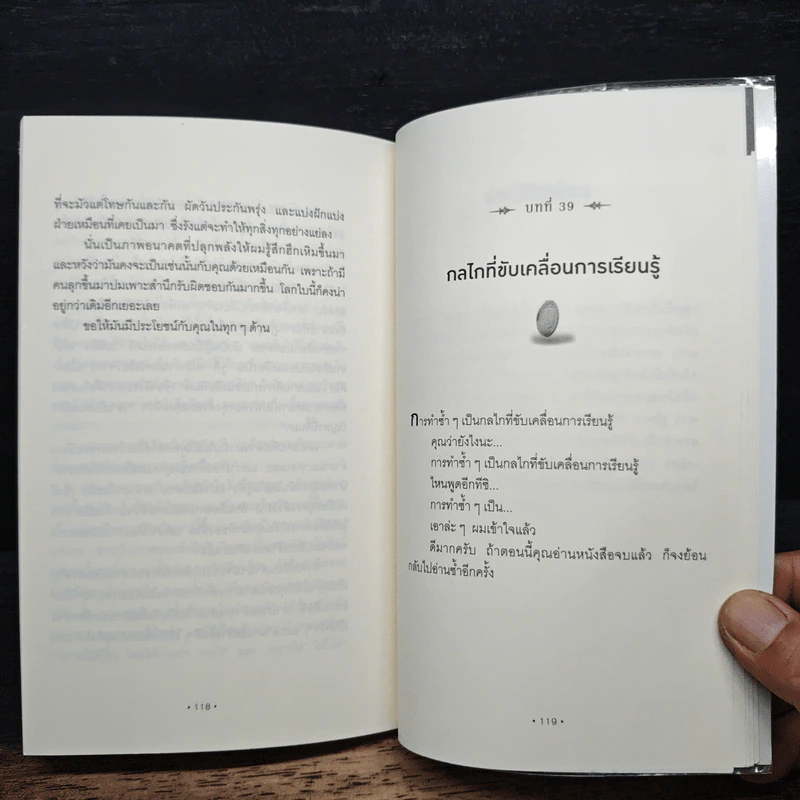 ที่จะมัวแต่โทษกันและกัน ผัดวันประกันพรุ่ง และแบ่งฝักแบ่ง
ฝ่ายเหมือนที่เคยเป็นมา ซึ่งรังแต่จะทำให้ทุกสิ่งทุกอย่างแย่ลง
นั่นเป็นภาพอนาคตที่ปลุกพลังให้ผมรู้สึกฮึกเหิมขึ้นมา
และหวังว่ามันคงจะเป็นเช่นนั้นกับคุณด้วยเหมือนกัน เพราะถ้ามี
คนลุกขึ้นมาบ่มเพาะสำนึกรับผิดชอบกันมากขึ้น โลกใบนี้ก็คงน่า
อยู่กว่าเดิมอีกเยอะเลย
ขอให้มันมีประโยชน์กับคุณในทุก ๆ ด้าน
• 118 •
บทที่ 39
กลไกที่ขับเคลื่อนการเรียนรู้
การทำซ้ำ ๆ เป็นกลไกที่ขับเคลื่อนการเรียนรู้
คุณว่ายังไงนะ...
การทำซ้ำ ๆ เป็นกลไกที่ขับเคลื่อนการเรียนรู้
ไหนพูดอีกทีซิ...
การทำซ้ำ ๆ เป็น...
เอาล่ะ ๆ ผมเข้าใจแล้ว
ดีมากครับ ถ้าตอนนี้คุณอ่านหนังสือจบแล้ว ก็จงย้อน
กลับไปอ่านซ้ำอีกครั้ง
• 119 •